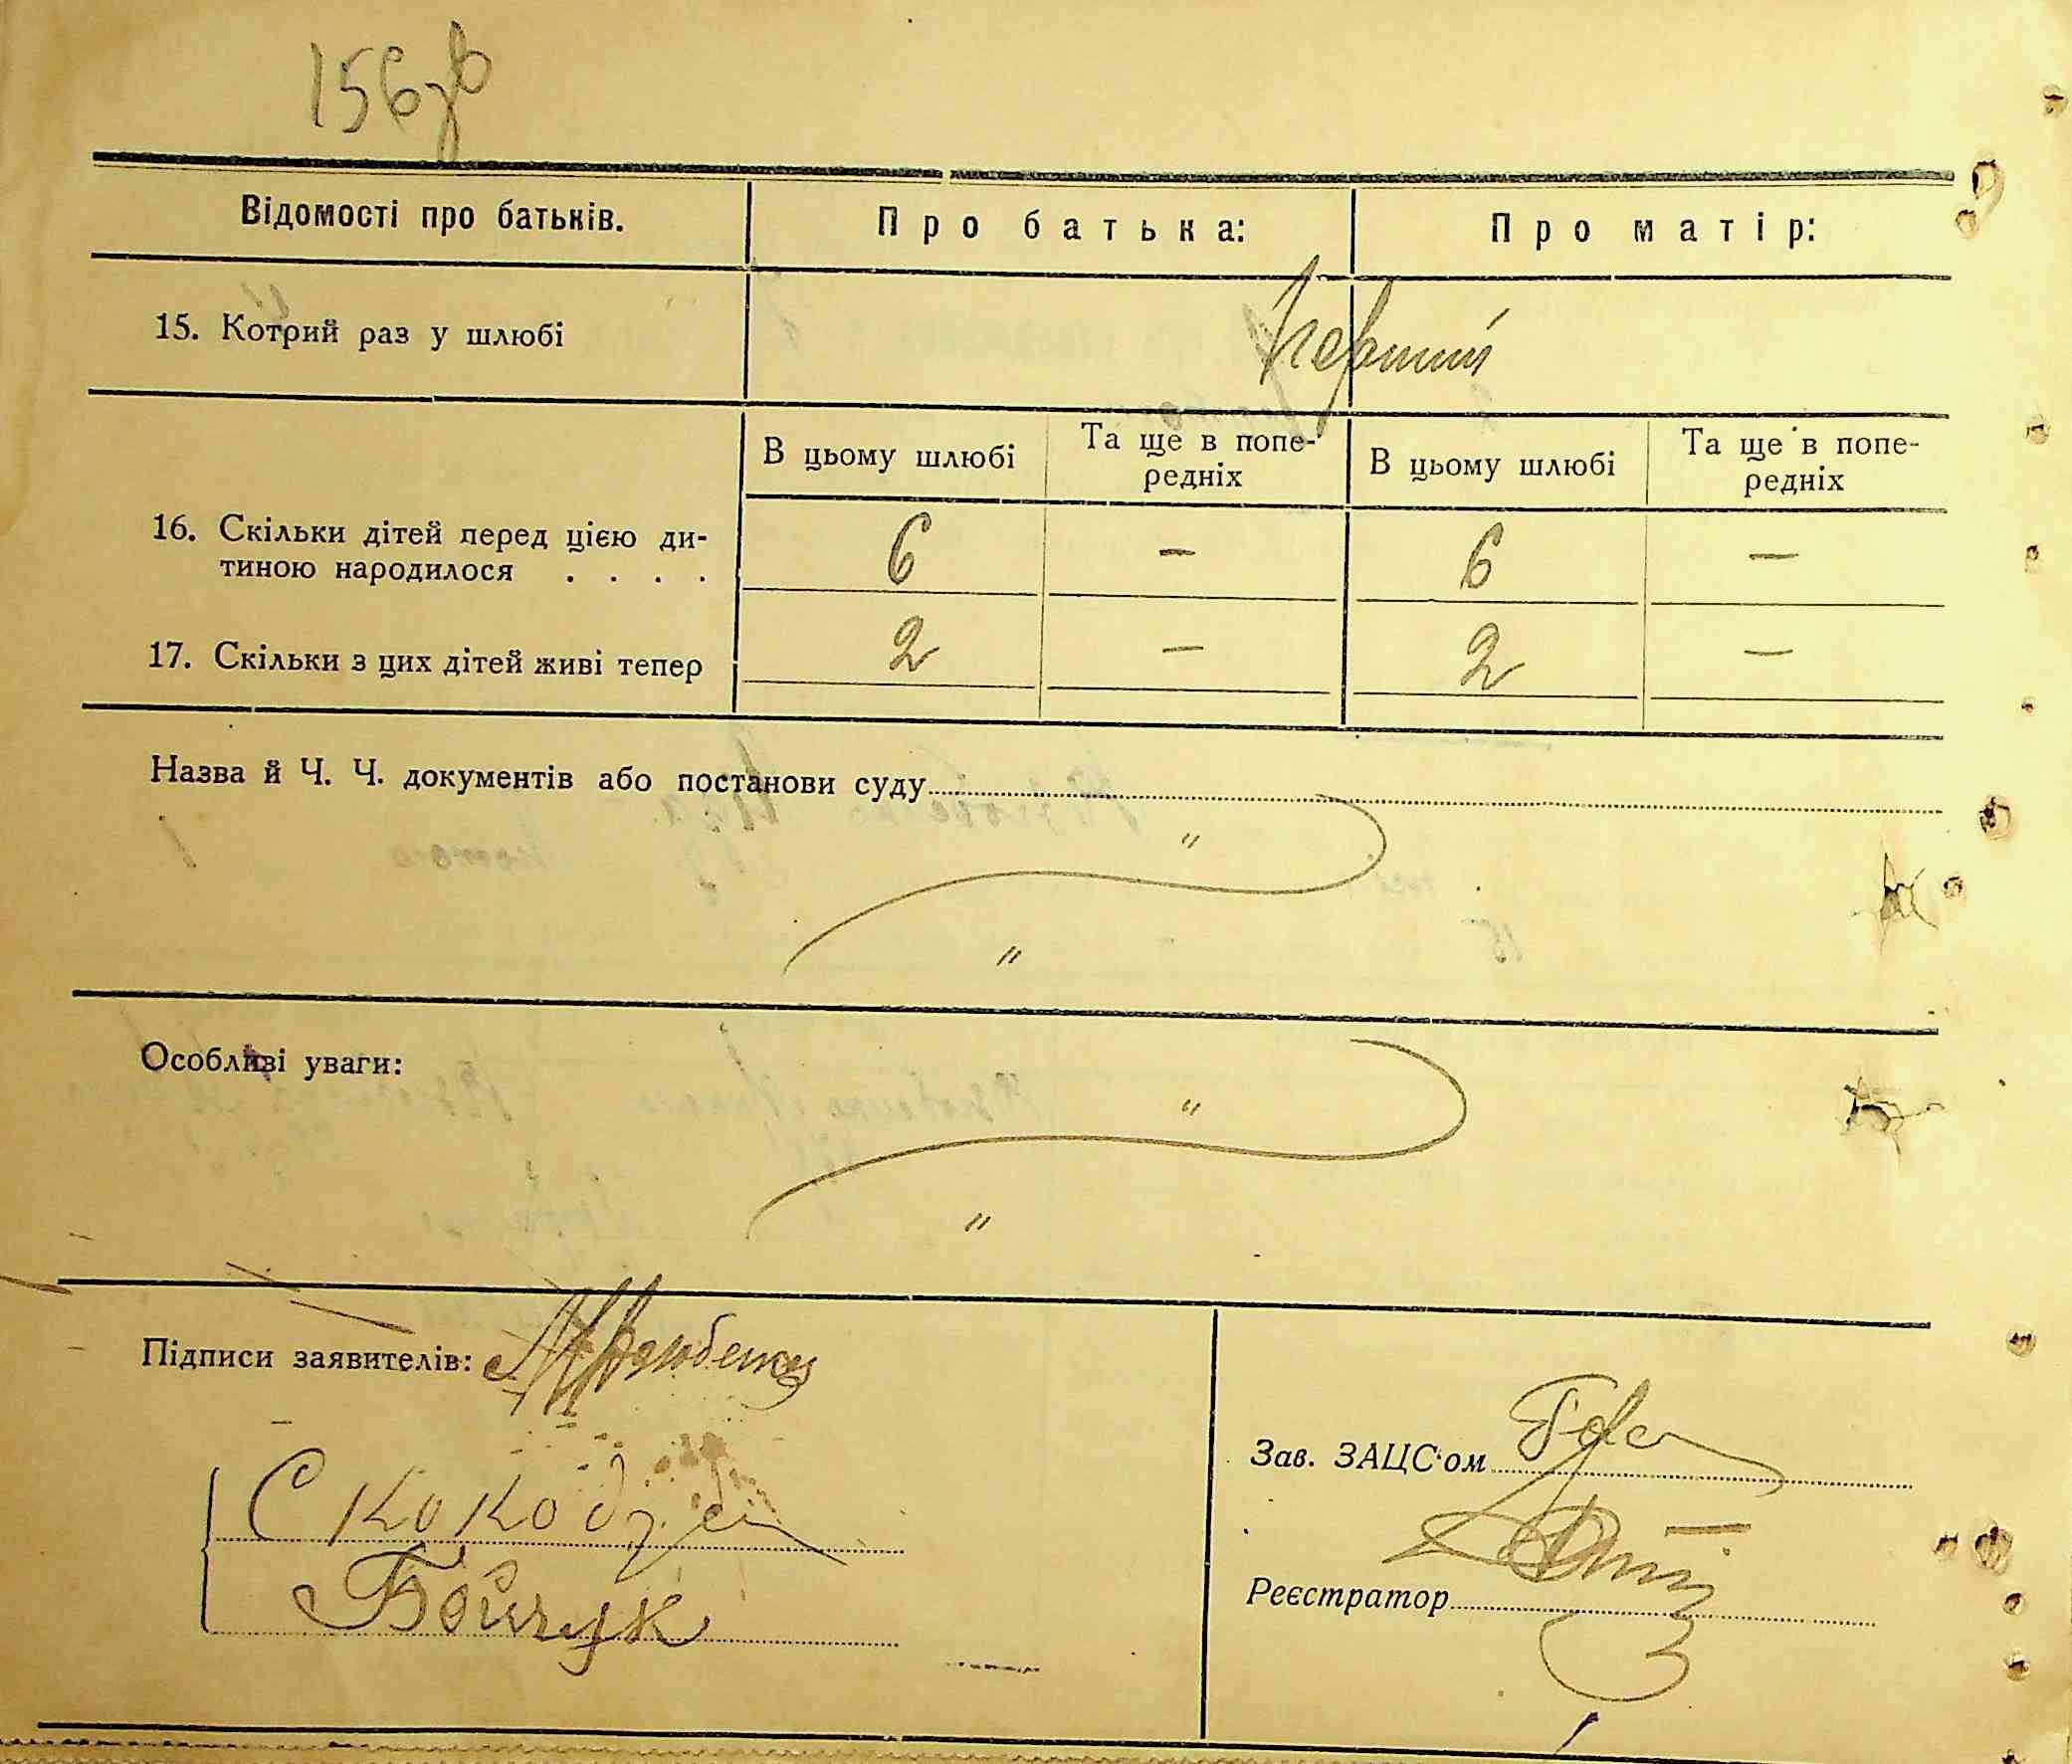 156зв
Відомості про батьків.
Про батька:
Про матір:
15. Котрий раз у шлюбі
Перший
В цьому шлюбі
Та ще в попе-
редніх
В цьому шлюбі
Та ще в попе-
редніх
16. Скільки дітей перед цією ди-
тиною народилося . . . .
6 — 6 —
17. Скільки з цих дітей живі тепер
2 — 2 —
Назва й Ч. Ч. документів або постанови суду
"
"
Особливі уваги:
"
"
Підписи заявителів:
Зав. ЗАЦС'ом
Бойчук
Реєстратор